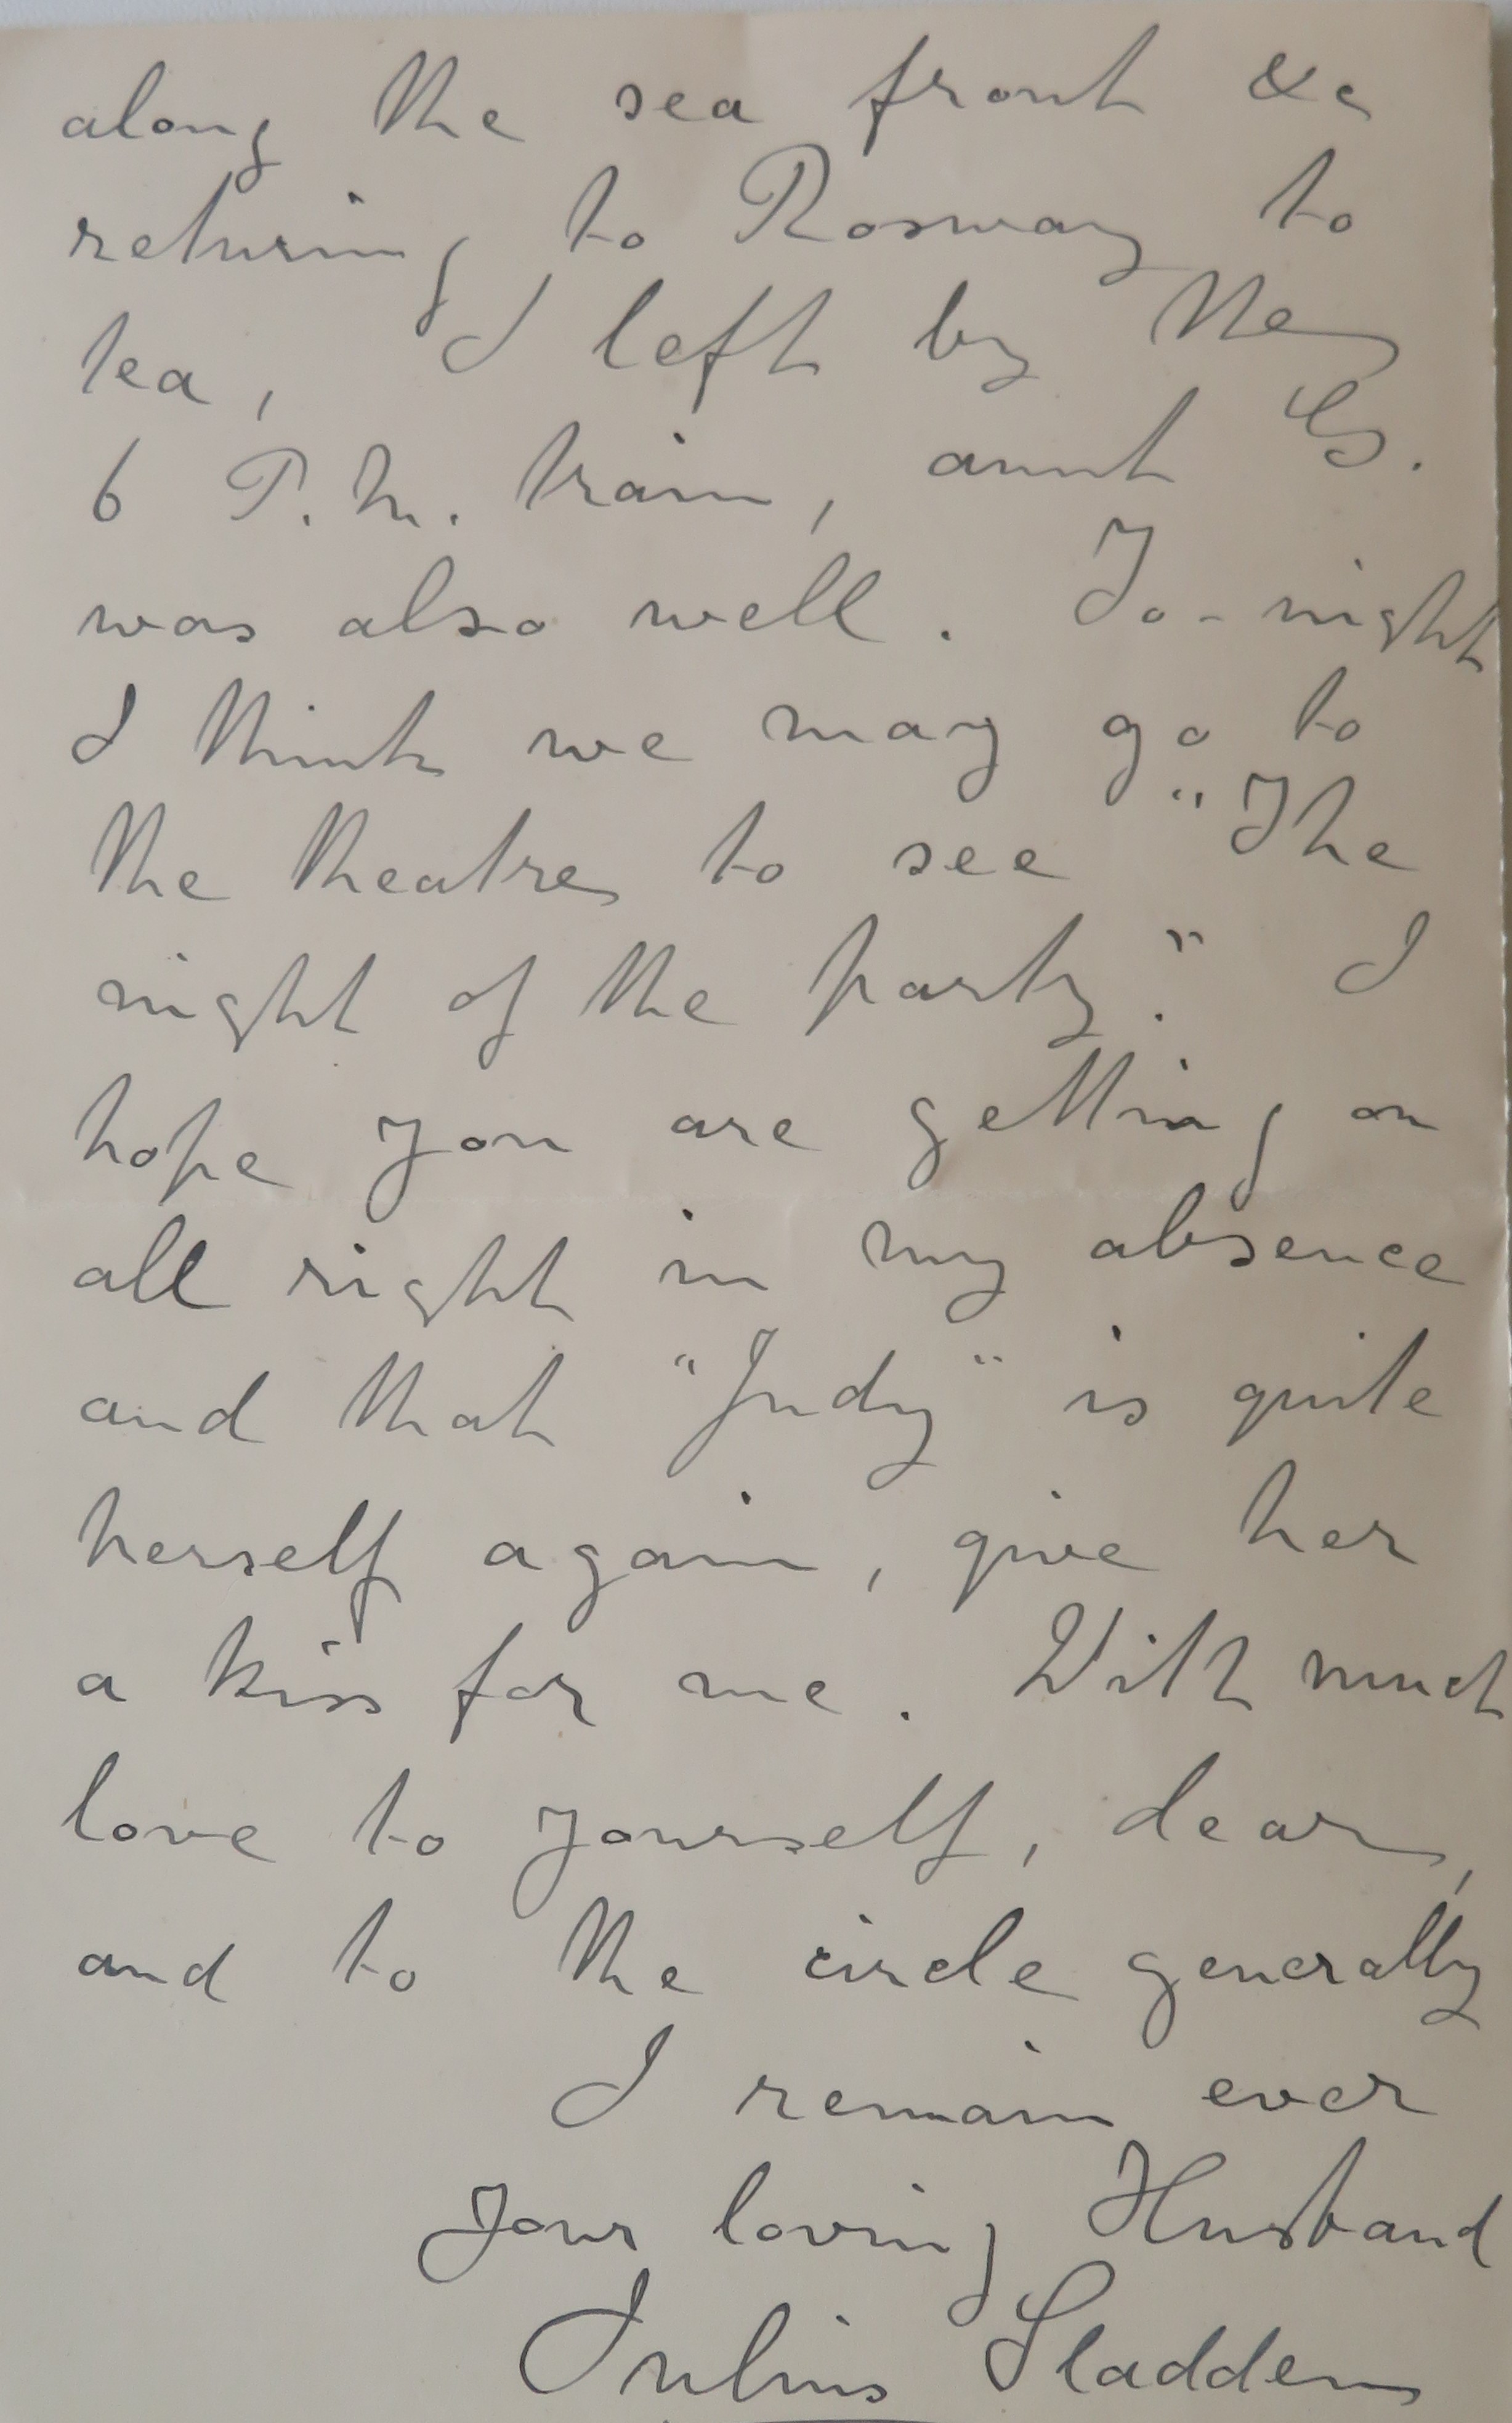 along the sea front &c
returning to Rosway to
tea, I left by the
6 P.M. train, aunt G.
was also well. To-night
I think we may go to
the theatre to see "The
night of the party". I
hope you are getting on
all right in my absence
and that "Judy" is quite
herself again, give her
a kiss for me. With much
love to yourself, dear,
and to the circle generally
I remain ever
Your loving Husband
Julius Sladden